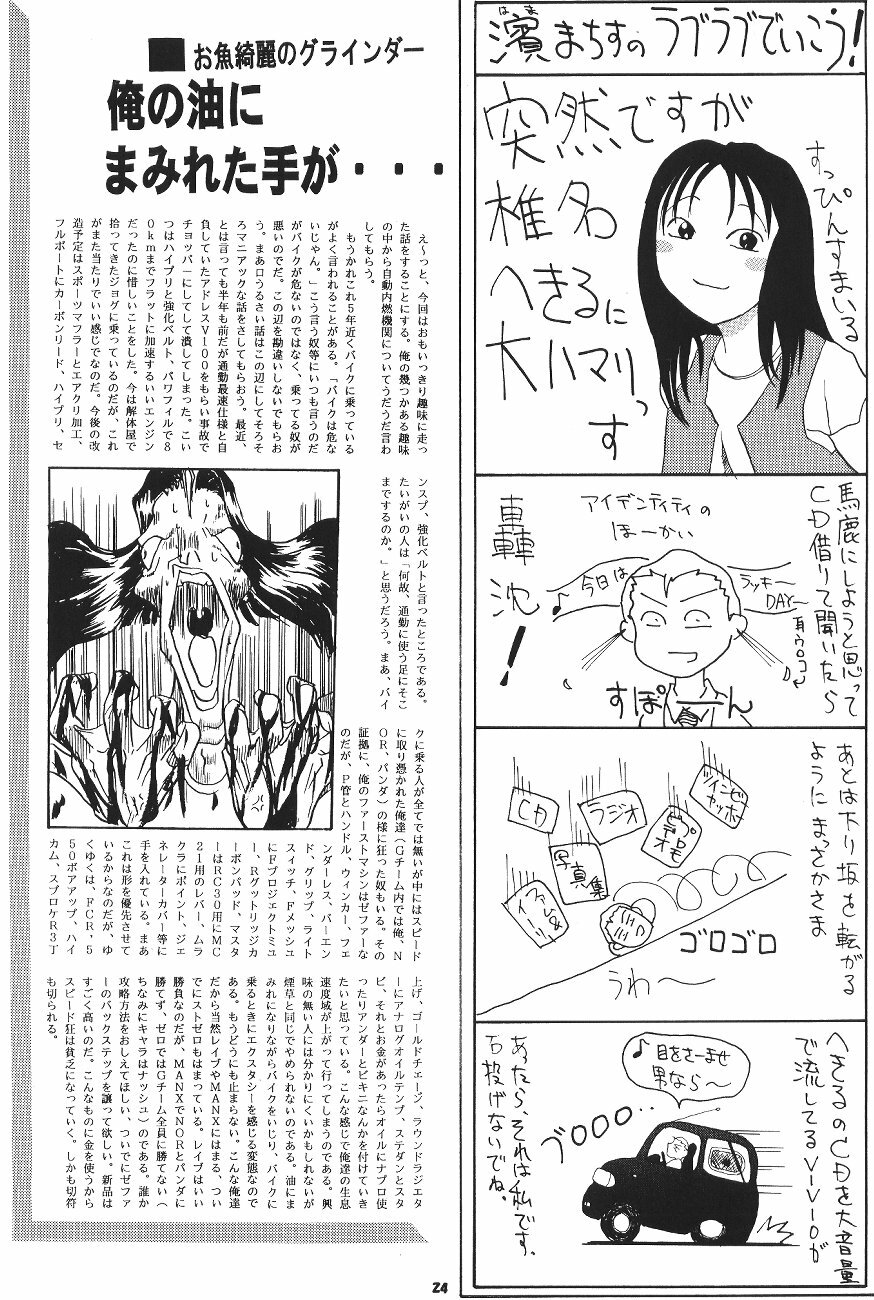 濱まちすのラブラブでいこう!
はま
突然ですが
椎名
へきるに
大ハマリっす
すっぴんすまいる
馬鹿にしようと思って
CD借りて聞いたら
アイデンティティの
ほーかい
♪今日は
ラッキー
DAY〜♪
耳ウロコ
轟沈!
すぽーん
あとは下り坂を転がる
ようにまっさかさま
ツインビー
ヤッホー
ラジオ
CD
写真集
ゴロゴロ
うわ〜
へきるのCDを大音量
で流してるVIVIOが
♪目をさーませ
男なら〜
ブOOO‥
あったら、それは私です。
石投げないでね。
■お魚綺麗のグラインダー
俺の油に
まみれた手が・・・
え〜っと、今回はおもいっきり趣味に走っ
た話をすることにする。俺の幾つかある趣味
の中から自動内燃機関についてうだうだ言わ
してもらう。
もうかれこれ5年近くバイクに乗っている
がよく言われることがある。「バイクは危な
いじゃん。」こう言う奴等にいつも言うのだ
がバイクが危ないのではなく、乗ってる奴が
悪いのでだ。この辺を勘違いしないでもらお
う。まあ口うるさい話はこの辺にしてそろそ
ろマニアックな話をさしてもらおう。最近、
とは言っても半年も前だが通勤最速仕様と自
負していたアドレスV100をもらい事故で
チョッパーにしてして潰してしまった。こい
つはハイプリと強化ベルト、パワフィルで8
0kmまでフラットに加速するいいエンジン
だったのに惜しいことをした。今は解体屋で
拾ってきたジョグに乗っているのだが、これ
がまた当たりでいい感じでなのだ。今後の改
造予定はスポーツマフラーとエアクリ加工、
フルポートにカーボンリード、ハイプリ、セ
ンスプ、強化ベルトと言ったところである。
たいがいの人は「何故、通勤に使う足にそこ
までするのか。」と思うだろう。まあ、バイ
クに乗る人が全てでは無いが中にはスピード
に取り憑かれた俺達(Gチーム内では俺、N
OR、パンダ)の様に狂った奴もいる。その
証拠に、俺のファーストマシンはゼファーな
のだが、P管とハンドル、ウィンカー、フェ
ンダーレス、バーエン
ド、グリップ、ライト
スィッチ、Fメッシュ
にFプロジェクトミュ
ー、Rグットリッジカ
ーボンパッド、マスタ
ーはRC30用にMC
21用のレバー、ムラ
クラにポイント、ジェ
ネレーターカバー等に
手を入れている。まあ
これは形を優先させて
いるからなのだが、ゆ
くゆくは、FCR、5
50ボアアップ、ハイ
カム、スプロケR3丁
上げ、ゴールドチェージ、ラウンドラジエタ
ーにアナログオイルテンプ、ステダンとスタ
ビ、それとお金があったらオイルにナプロ使
ったりアンダーとビキニなんかを付けていき
たいと思っている。こんな感じで俺達の生息
速度域が上がって行ってしまうのである。興
味の無い人には分かりにくいかもしれないが
煙草と同じでやめられないのである。油にま
みれになりながらバイクをいじり、バイクに
乗るときにエクスタシーを感じる変態なので
ある。もうどうにも止まらない。こんな俺達
だから当然レイブやMANXにはまる、つい
でにストゼロもはまっている。レイブはいい
勝負なのだが、MANXでNORとパンダに
勝てず、ゼロではGチーム全員に勝てない(
ちなみにキャラはナッシュ)のである。誰か
攻略方法をおしえてほしい、ついでにゼファ
ーのバックステップを譲って欲しい。新品は
すごく高いのだ。こんなものに金を使うから
スピード狂は貧乏になっていく。しかも切符
も切られる。
24